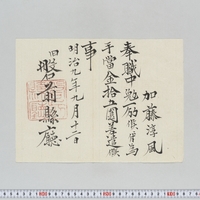 加藤淳風
奉職中勉励候ニ付為
手當金拾五圓差遣候
事
明治九年九月十二日
旧磐前縣廳